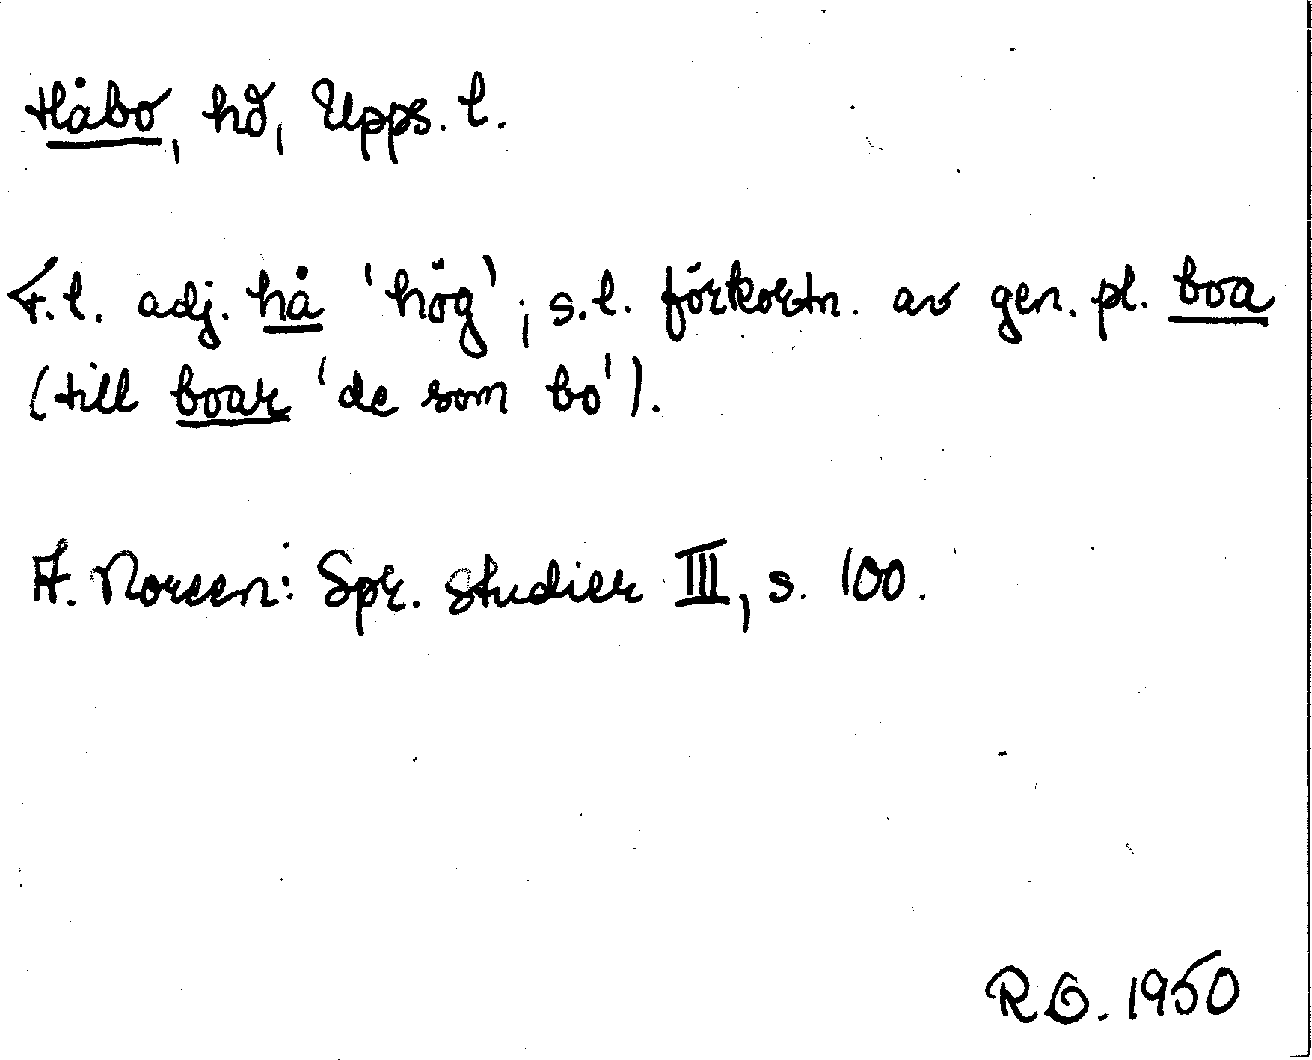 Håbo, hd, Upps. l.
F.l. adj. hå 'hög'; s.l. förkortn. av gen. pl. boa
(till boar 'de som bo').
A. Noreen: Spr. studier III, s. 100.
R.O. 1950